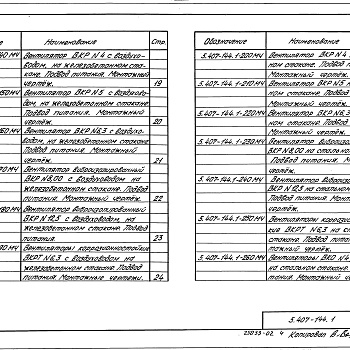 Наименование
Стр.
040 МЧ Вентилятор ВКР N4 с воздухо-
водом, на железобетонном ста-
кане. Подвод питания. Монтажный
чертёж. 19
050 МЧ Вентилятор ВКР N5 с воздухо-
водом, на железобетонном стакане
Подвод питания. Монтажный
чертёж. 20
Вентилятор ВКР N6,3 с воздухо-
водом, на железобетонном стакане
Подвод питания. Монтажный
чертёж. 21
Вентилятор виброизолированный
ВКР N8,00 с воздуховодом на
железобетонном стакане. Подвод
питания. Монтажный чертёж. 22
Вентилятор виброизолированный
ВКР N12,5 с воздуховодом, на
железобетонном стакане. Подвод
питания. 23
Вентиляторы коррозионностойкие
ВКРТ N6,3 с воздуховодом на
железобетонном стакане. Подвод
питания. Монтажные чертежи. 24
Обозначение
Наименование
5.407-144.1-200МЧ Вентилятор ВКР N4
ном стакане. Подвод п
Монтажный чертёж.
5.407-144.1-210МЧ Вентилятор ВКР N5
ном стакане. Подвод
Монтажный чертёж.
5.407-144.1-220МЧ Вентилятор ВКР N6,3
ном стакане. Подвод
Монтажный чертёж.
5.407-144.1-230МЧ Вентилятор виброизол
ВКР N8,00 на стально
Подвод питания. М
чертёж.
5.407-144.1-240МЧ Вентилятор виброиз
ВКР N12,5 на стально
Подвод питания. Мон
чертёж.
5.407-144.1-250МЧ Вентиляторы корроз
кие ВКРТ N6,3 на ст
стакане. Подвод питат
Монтажный чертёж.
5.407-144.1-260МЧ Вентиляторы ВКО N4
на стальном стакане
питания. Монтажны
5.407-144.1
25233-02 4 Копировал